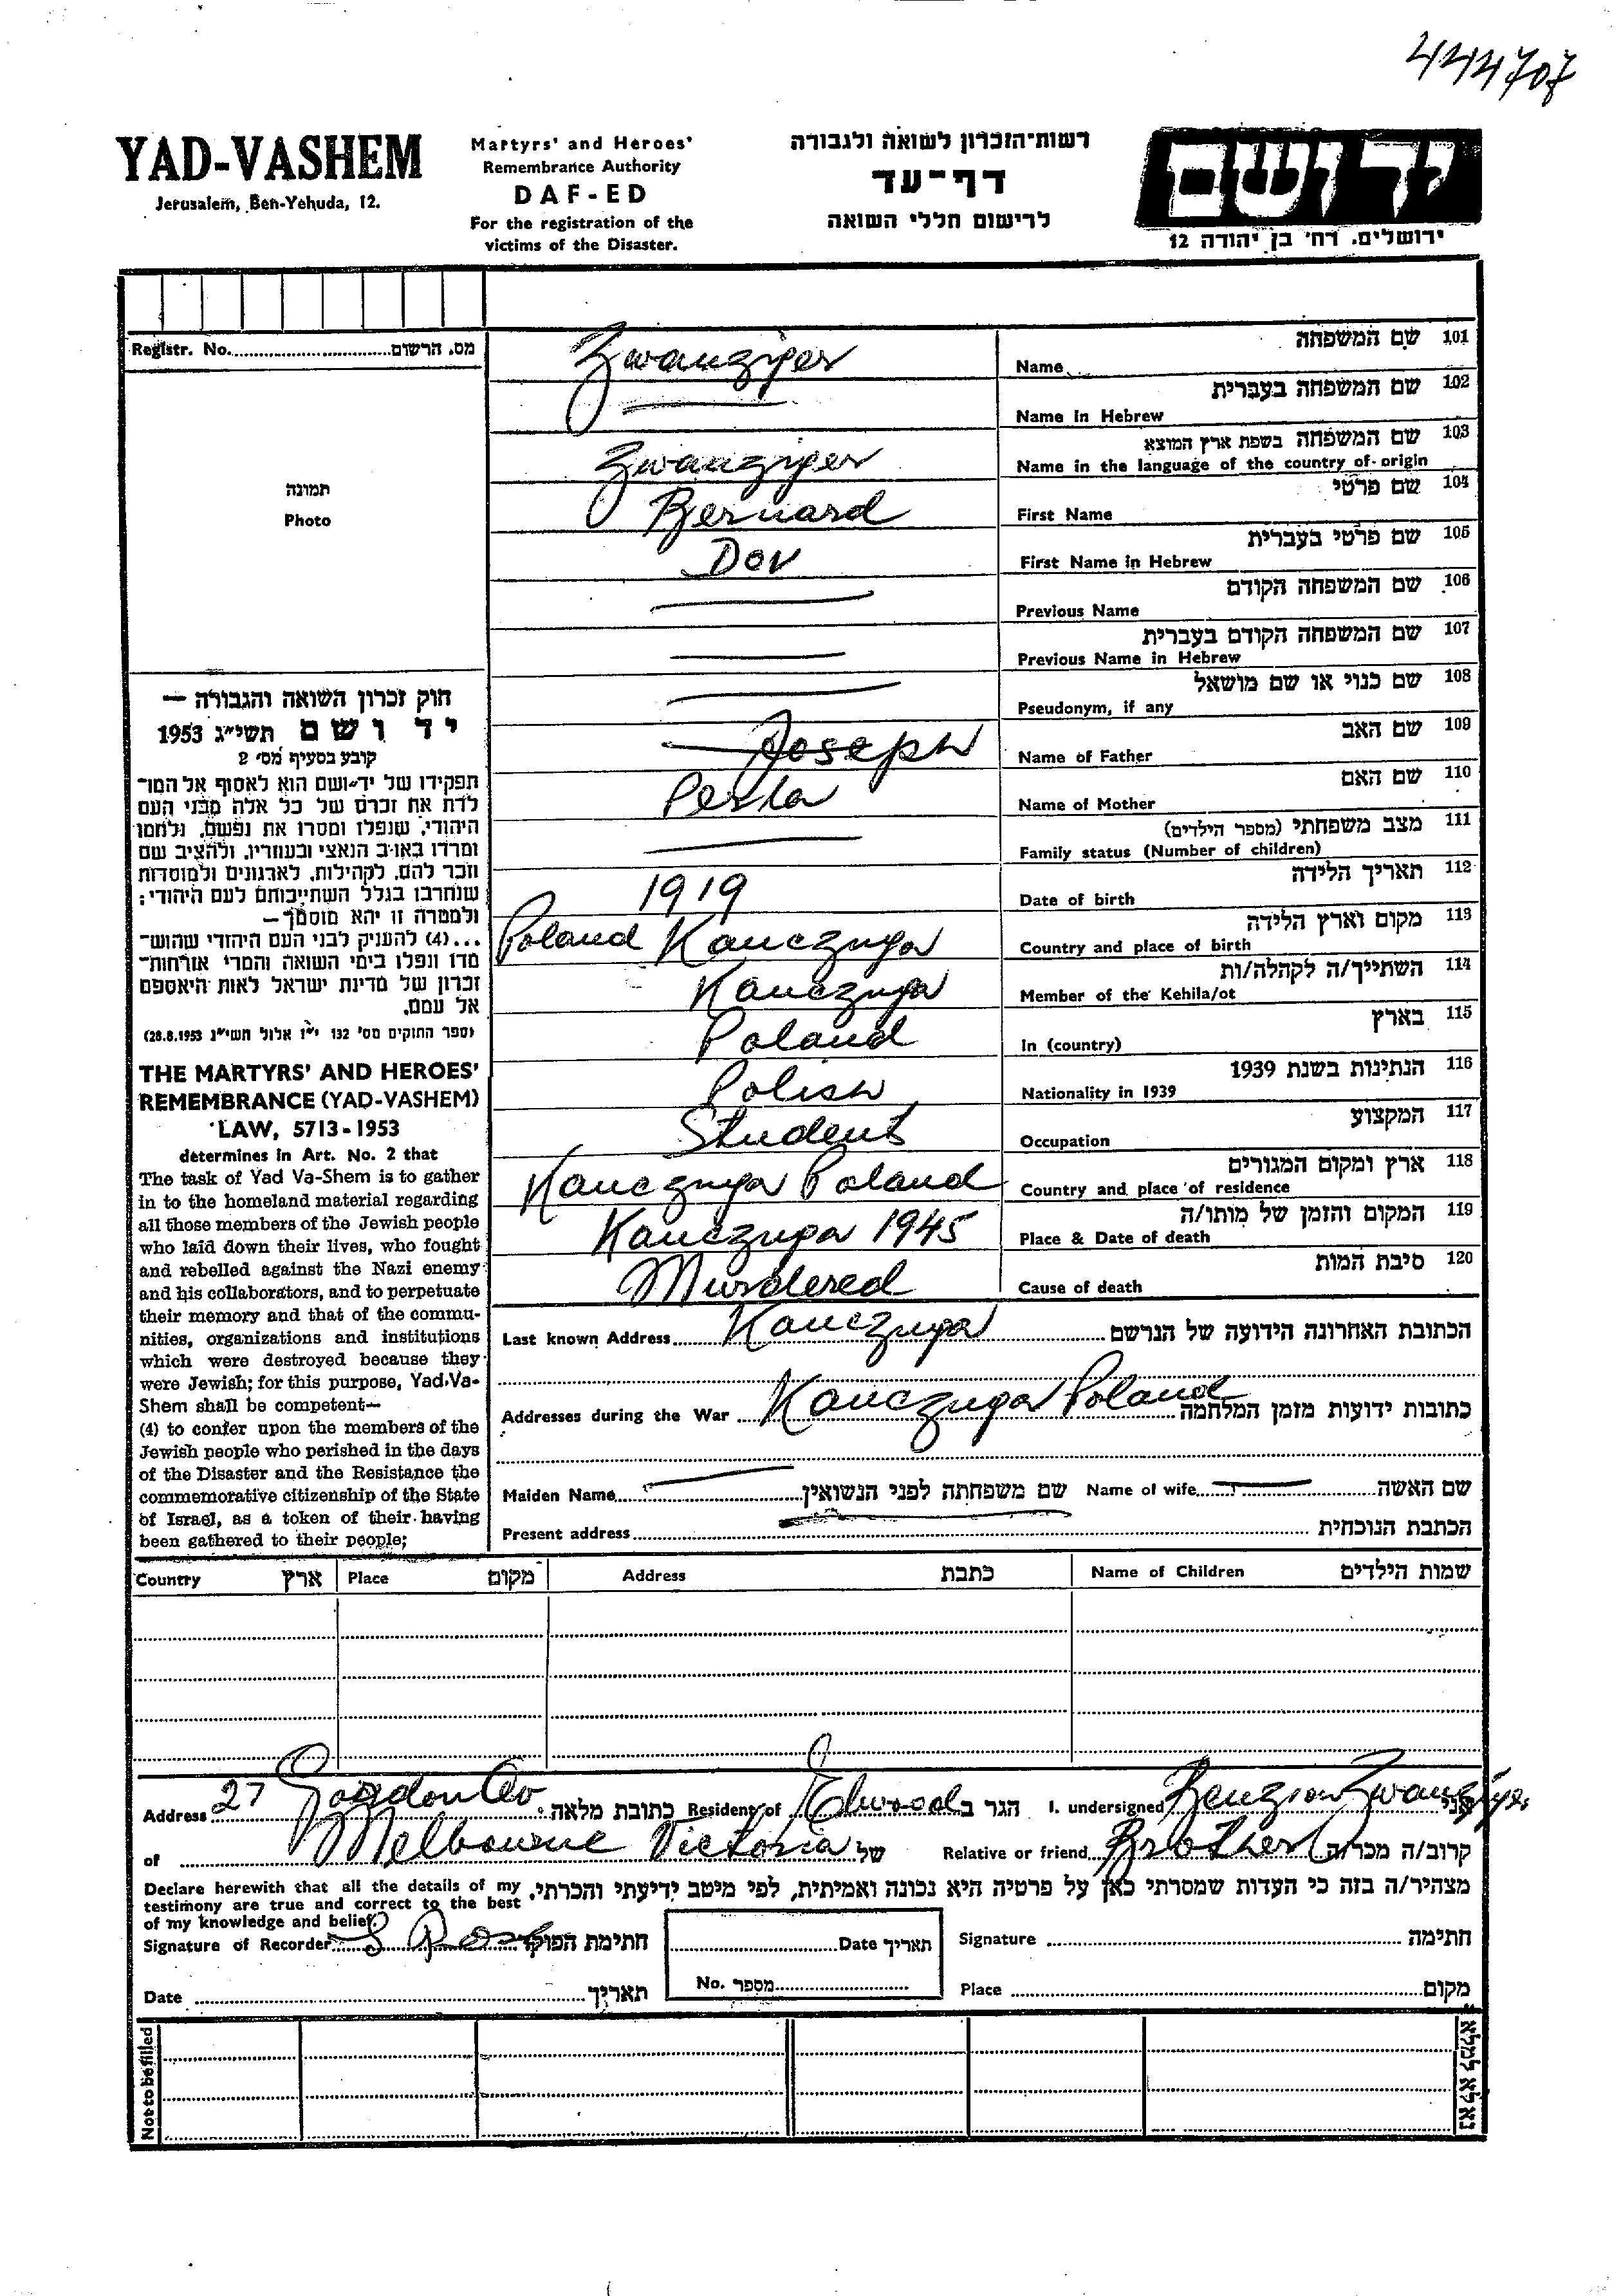 444707
YAD-VASHEM
Jerusalem, Ben-Yehuda, 12.
Martyrs' and Heroes'
Remembrance Authority
DAF-ED
For the registration of the
victims of the Disaster.
רשות-הזכרון לשואה ולגבורה
דף-עד
לרישום חללי השואה
ידושם
ירושלים. רח' בן יהודה 12
Registr. No. מס. הרשום
תמונה
Photo
חוק זכרון השואה והגבורה —
יד ושם תשי"ג 1953
קובע בסעיף מס' 2
תפקידו של יד-ושם הוא לאסוף אל המו-
לדת את זכרם של כל אלה מבני העם
היהודי, שנפלו ומסרו את נפשם, נלחמו
ומרדו באויב הנאצי ובעוזריו, ולהציב שם
וזכר להם, לקהילות, לארגונים ולמוסדות
שנחרבו בגלל השתייכותם לעם היהודי:
ולמטרה זו יהא מוסמך —
...(4) להעניק לבני העם היהודי שהוש-
מדו ונפלו בימי השואה והמרי אזרחות-
זכרון של מדינת ישראל לאות היאספם
אל עמם.
(ספר החוקים מס' 132 י"ז אלול תשי"ג 28.8.1953)
THE MARTYRS' AND HEROES'
REMEMBRANCE (YAD-VASHEM)
LAW, 5713-1953
determines in Art. No. 2 that
The task of Yad Va-Shem is to gather
in to the homeland material regarding
all those members of the Jewish people
who laid down their lives, who fought
and rebelled against the Nazi enemy
and his collaborators, and to perpetuate
their memory and that of the commu-
nities, organizations and institutions
which were destroyed because they
were Jewish; for this purpose, Yad-Va-
Shem shall be competent—
(4) to confer upon the members of the
Jewish people who perished in the days
of the Disaster and the Resistance the
commemorative citizenship of the State
of Israel, as a token of their having
been gathered to their people;
Zwanziger Name שם המשפחה 101
Name in Hebrew שם המשפחה בעברית 102
Zwanziger Name in the language of the country of origin שם המשפחה בשפת ארץ המוצא 103
Bernard First Name שם פרטי 104
Dov First Name in Hebrew שם פרטי בעברית 105
Previous Name שם המשפחה הקודם 106
Previous Name in Hebrew שם המשפחה הקודם בעברית 107
Pseudonym, if any שם כנוי או שם מושאל 108
Joseph Name of Father שם האב 109
Perla Name of Mother שם האם 110
Family status (Number of children) מצב משפחתי (מספר הילדים) 111
1919 Date of birth תאריך הלידה 112
Poland Kanczuga Country and place of birth מקום וארץ הלידה 113
Kanczuga Member of the Kehila/ot השתייך/ה לקהלה/ות 114
Poland In (country) בארץ 115
Polish Nationality in 1939 הנתינות בשנת 1939 116
Student Occupation המקצוע 117
Kanczuga Poland Country and place of residence ארץ ומקום המגורים 118
Kanczuga 1945 Place & Date of death המקום והזמן של מותו/ה 119
Murdered Cause of death סיבת המות 120
Last known Address Kanczuga הכתובת האחרונה הידועה של הנרשם
Addresses during the War Kanczuga Poland כתובות ידועות מזמן המלחמה
Maiden Name שם משפחתה לפני הנשואין Name of wife שם האשה
Present address הכתבת הנוכחית
Country ארץ Place מקום Address כתבת Name of Children שמות הילדים
Address 27 Gordon Av כתובת מלאה Resident of Elwood הגר ב I. undersigned Benzion Zwanziger אני
of Melbourne Victoria של Relative or friend Brother קרוב/ה מכר/ה
Declare herewith that all the details of my
testimony are true and correct to the best
of my knowledge and belief.
מצהיר/ה בזה כי העדות שמסרתי כאן על פרטיה היא נכונה ואמיתית, לפי מיטב ידיעתי והכרתי.
Signature of Recorder חתימת הפוקד Date תאריך Signature חתימה
Date תאריך No. מספר Place מקום
Not to be filled
נא לא למלא